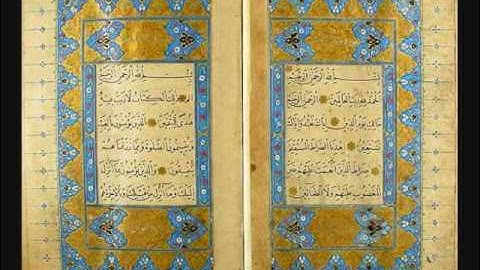 بسم الله الرحمن الرحيم
الحمد لله رب العالمين
الرحمن الرحيم ملك يوم الدين
اياك نعبد واياك نستعين
اهدنا الصراط المستقيم
صراط الذين انعمت عليهم غير
المغضوب عليهم ولا الضالين
بسم الله الرحمن الرحيم
الم ذلك الكتاب لا ريب فيه
هدى للمتقين الذين يؤمنون بالغيب
ويقيمون الصلوة ومما رزقناهم
ينفقون والذين يؤمنون بما انزل
اليك وما انزل من قبلك وبالاخرة هم